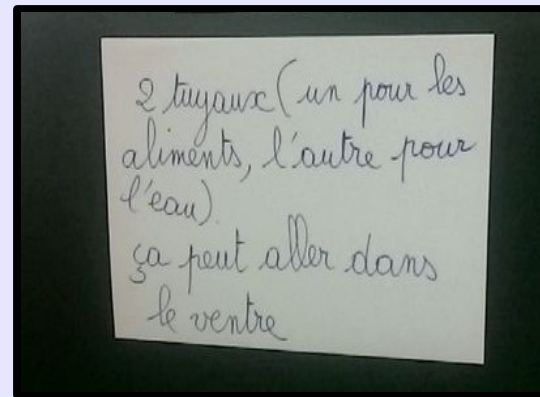 2 tuyaux (un pour les
aliments, l'autre pour
l'eau).
ça peut aller dans
le ventre